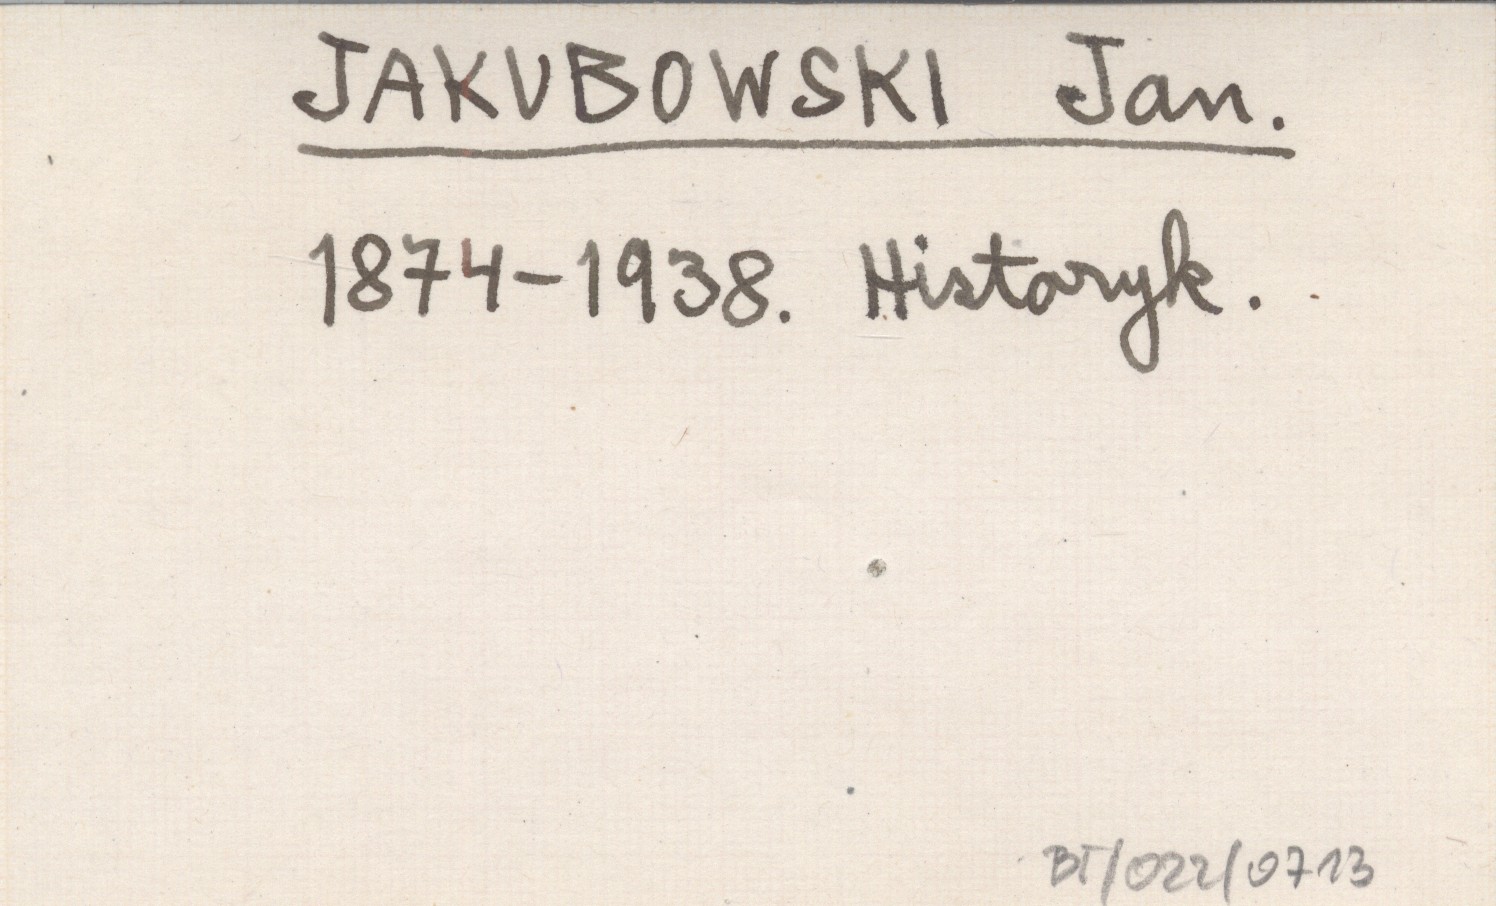 JAKUBOWSKI Jan.
1874-1938. Historyk.
BT/022/0713